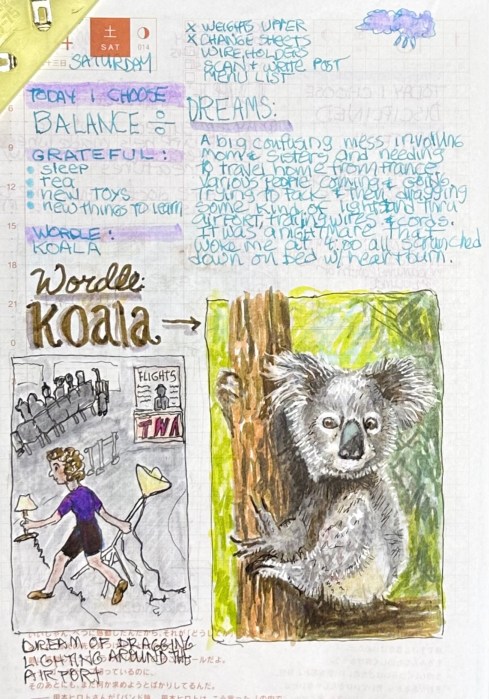 土
SAT
014
SATURDAY
x WEIGHTS UPPER
x CHANGE SHEETS
WIRE HOLDERS
SCAN + WRITE POST
MENU LIST
TODAY I CHOOSE
BALANCE
GRATEFUL:
sleep
tea
new TOYS
new things to learn
WORDLE:
KOALA
DREAMS:
A big confusing mess involving
mom & sisters and needing
to travel home from France
various people coming & going
trying to pack + then dragging
some kind of lights and thru
airport, trailing wires & cords.
It was a nightmare that
woke me at 4:00 all scrunched
down on bed w/ heartburn.
9
12
15
18
21
0
Wordle:
Koala →
FLIGHTS
TWA
DREAM OF DRAGGING
LIGHTING AROUND THE
AIRPORT
っているのに、
そのあとにも、まだ何か求めようとばかりしてるんだ。